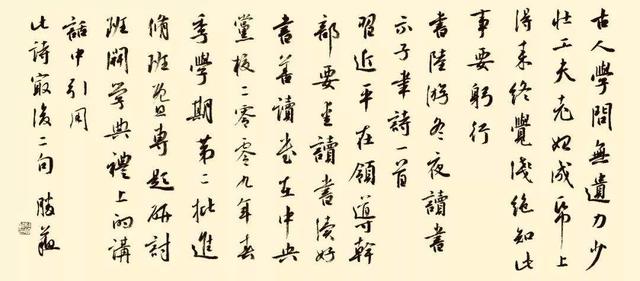 古人學問無遺力少
壯工夫老始成紙上
得來終覺淺絕知此
事要躬行
書陸游冬夜讀書
示子聿詩一首
習近平在領導幹
部要愛讀書讀好
書善讀書在中央
黨校二零零九年春
季學期第二批進
修班暨專題研討
班開學典禮上的講
話中引用
此詩最後二句